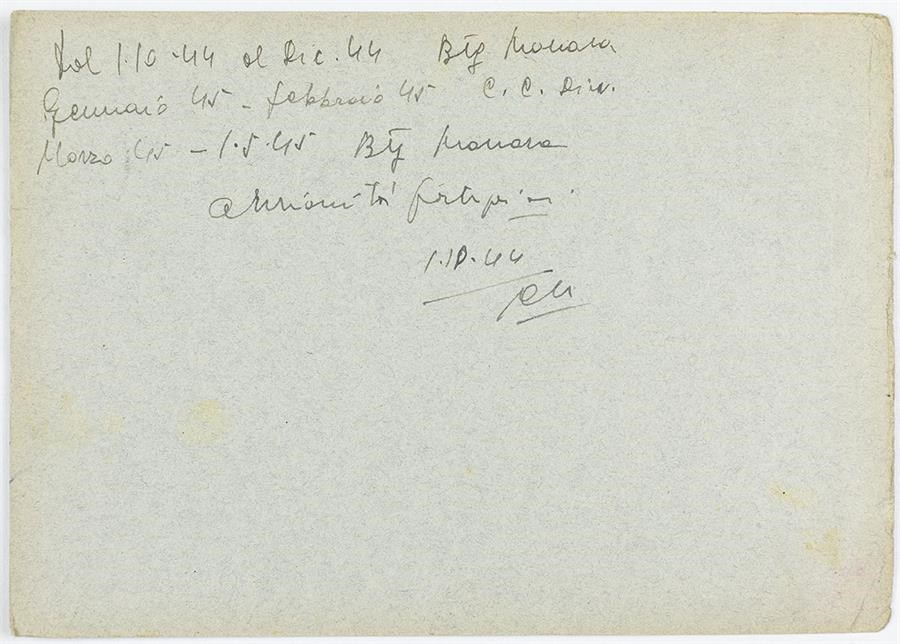 Dal 1.10.44 al Dic. 44 Btg Manara
Gennaio 45 - febbraio 45 C. C. Div.
Marzo 45 - 1.5.45 Btg Manara
anzianità
1.10.44